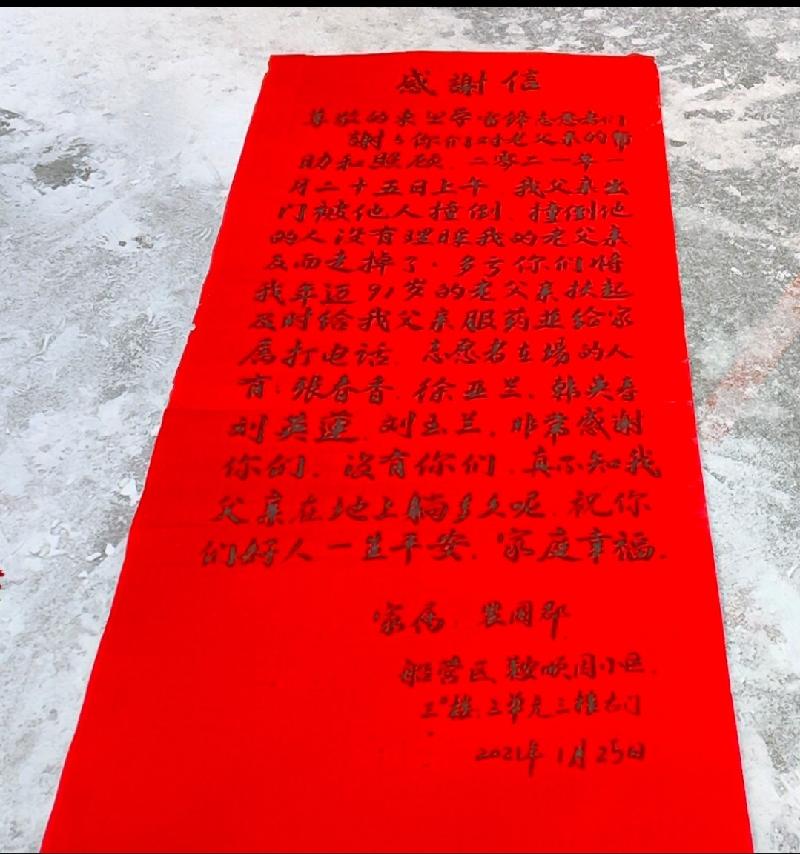 感謝信
尊敬的 学雷锋志愿者们
謝々你们对老父亲的帮
助和照顾,二零二一年一
月二十五日上午 我父亲出
门被他人撞倒、撞倒他
的人没有理睬我的老父亲
反而走掉了.多亏你们将
我年迈91岁的老父亲扶起
及时给我父亲服药並给家
属打电话.志愿者在場的人
有:張春香.徐亚兰.韩英春
刘英莲.刘玉兰.非常感谢
你们.没有你们.真不知我
父亲在地上躺多久呢.祝你
们好人一生平安.家庭幸福.
家属.
船营区 小区.
三单元三楼右门
2021年1月25日